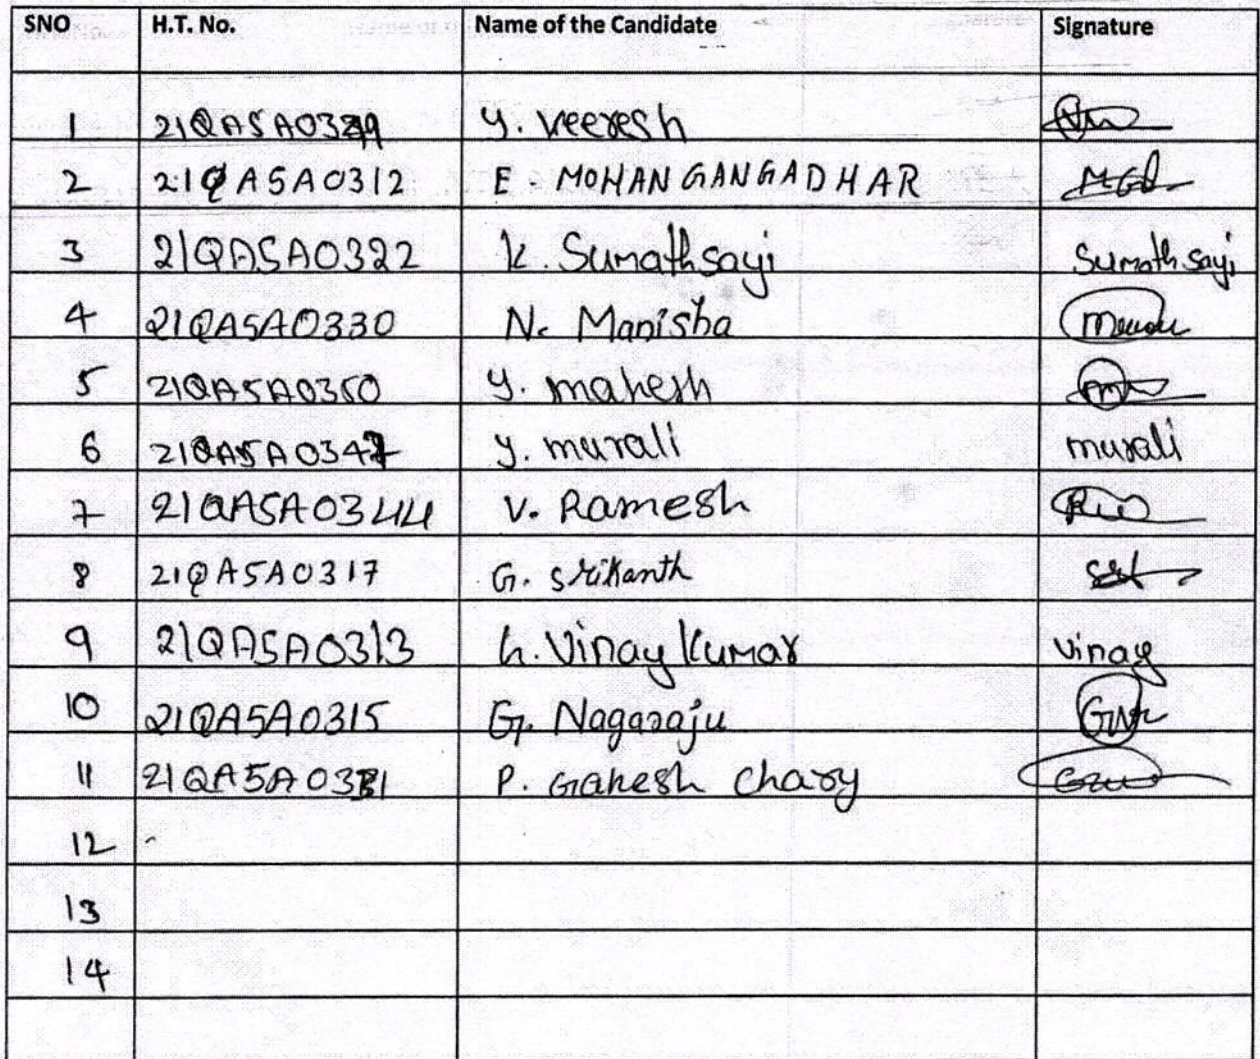 SNO H.T. No. Name of the Candidate Signature
1 Y. Veeresh
2 21QA5A0312 E. MOHAN GANGADHAR MGD
3 21QA5A0322 K. Sumathsayi Sumath sayi
4 21QA5A0330 N. Manisha
5 21QA5A0350 Y. mahesh
6 21QA5A0347 Y. murali murali
7 21QA5A0344 V. Ramesh
8 21QA5A0317 G. Srikanth
9 21QA5A0313 G. Vinay Kumar Vinay
10 21QA5A0315 G. Nagaraju
11 21QA5A0331 P. Ganesh Chary
12
13
14